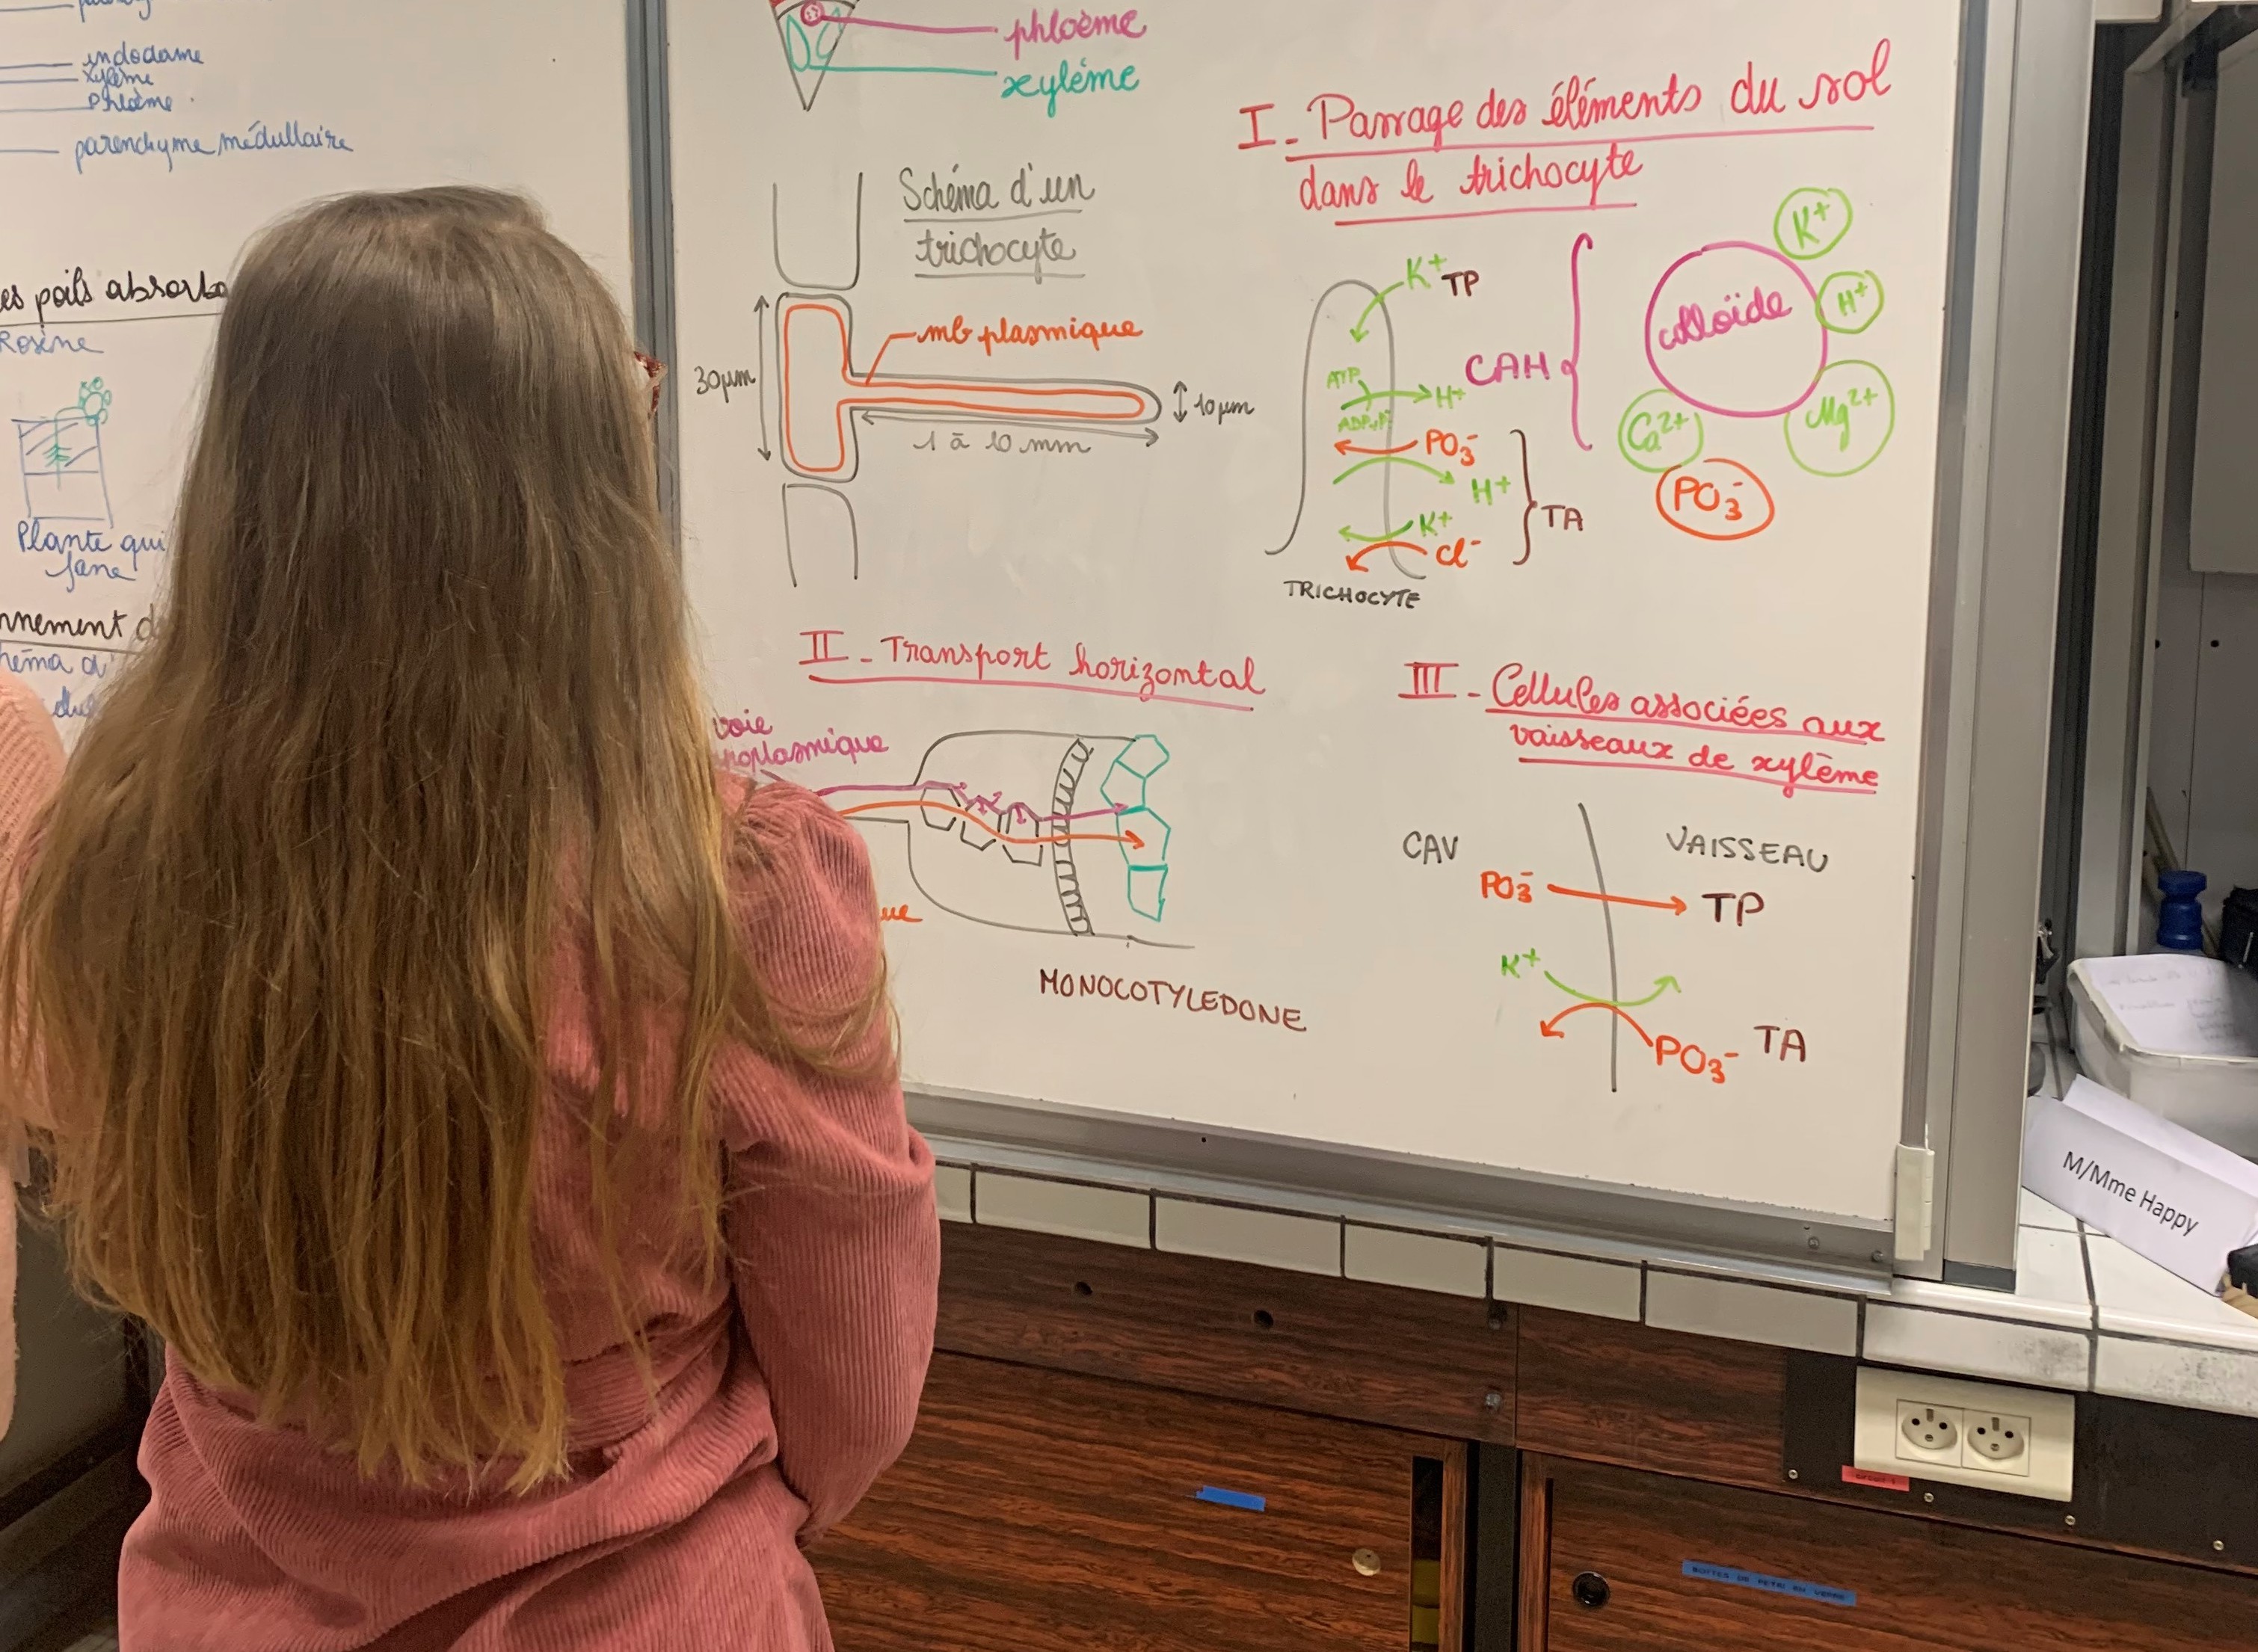 indodame
xylème
Phloème
parenchyme médullaire
es poils absorba
Rosine
Plante qui
fane
nnement d
héma d'
phloème
xylème
Schéma d'un
trichocyte
mb plasmique
30µm
10µm
1 à 10 mm
I - Passage des éléments du sol
dans le trichocyte
K+ TP
ATP
H+
ADP+Pi
PO3-
H+
K+
Cl-
TA
TRICHOCYTE
CAH
colloïde
K+
H+
Mg2+
Ca2+
PO3-
II - Transport horizontal
voie
oplasmique
ue
MONOCOTYLEDONE
III - Cellules associées aux
vaisseaux de xylème
CAV
VAISSEAU
PO3-
TP
K+
PO3- TA
M/Mme Happy
circuit 1
BOITES DE PETRI EN VERRE